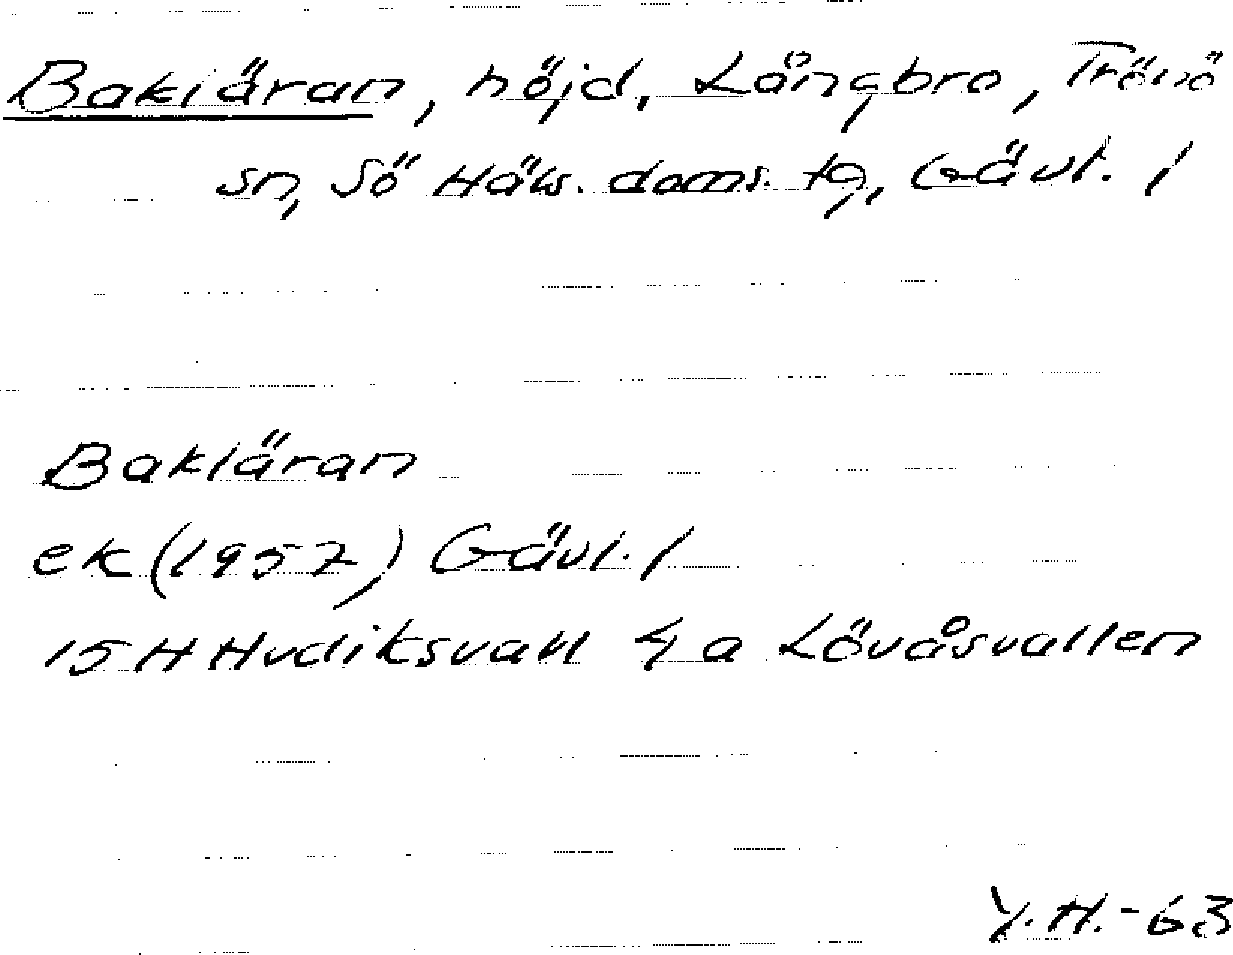 Bakläran, höjd, Långbro, Trönö
sn, Sö Häls. doms. tg, Gävl. l
Bakläran
ek (1957) Gävl. l
15 H Hudiksvall 4 a Lövåsvallen
Y.H.-63